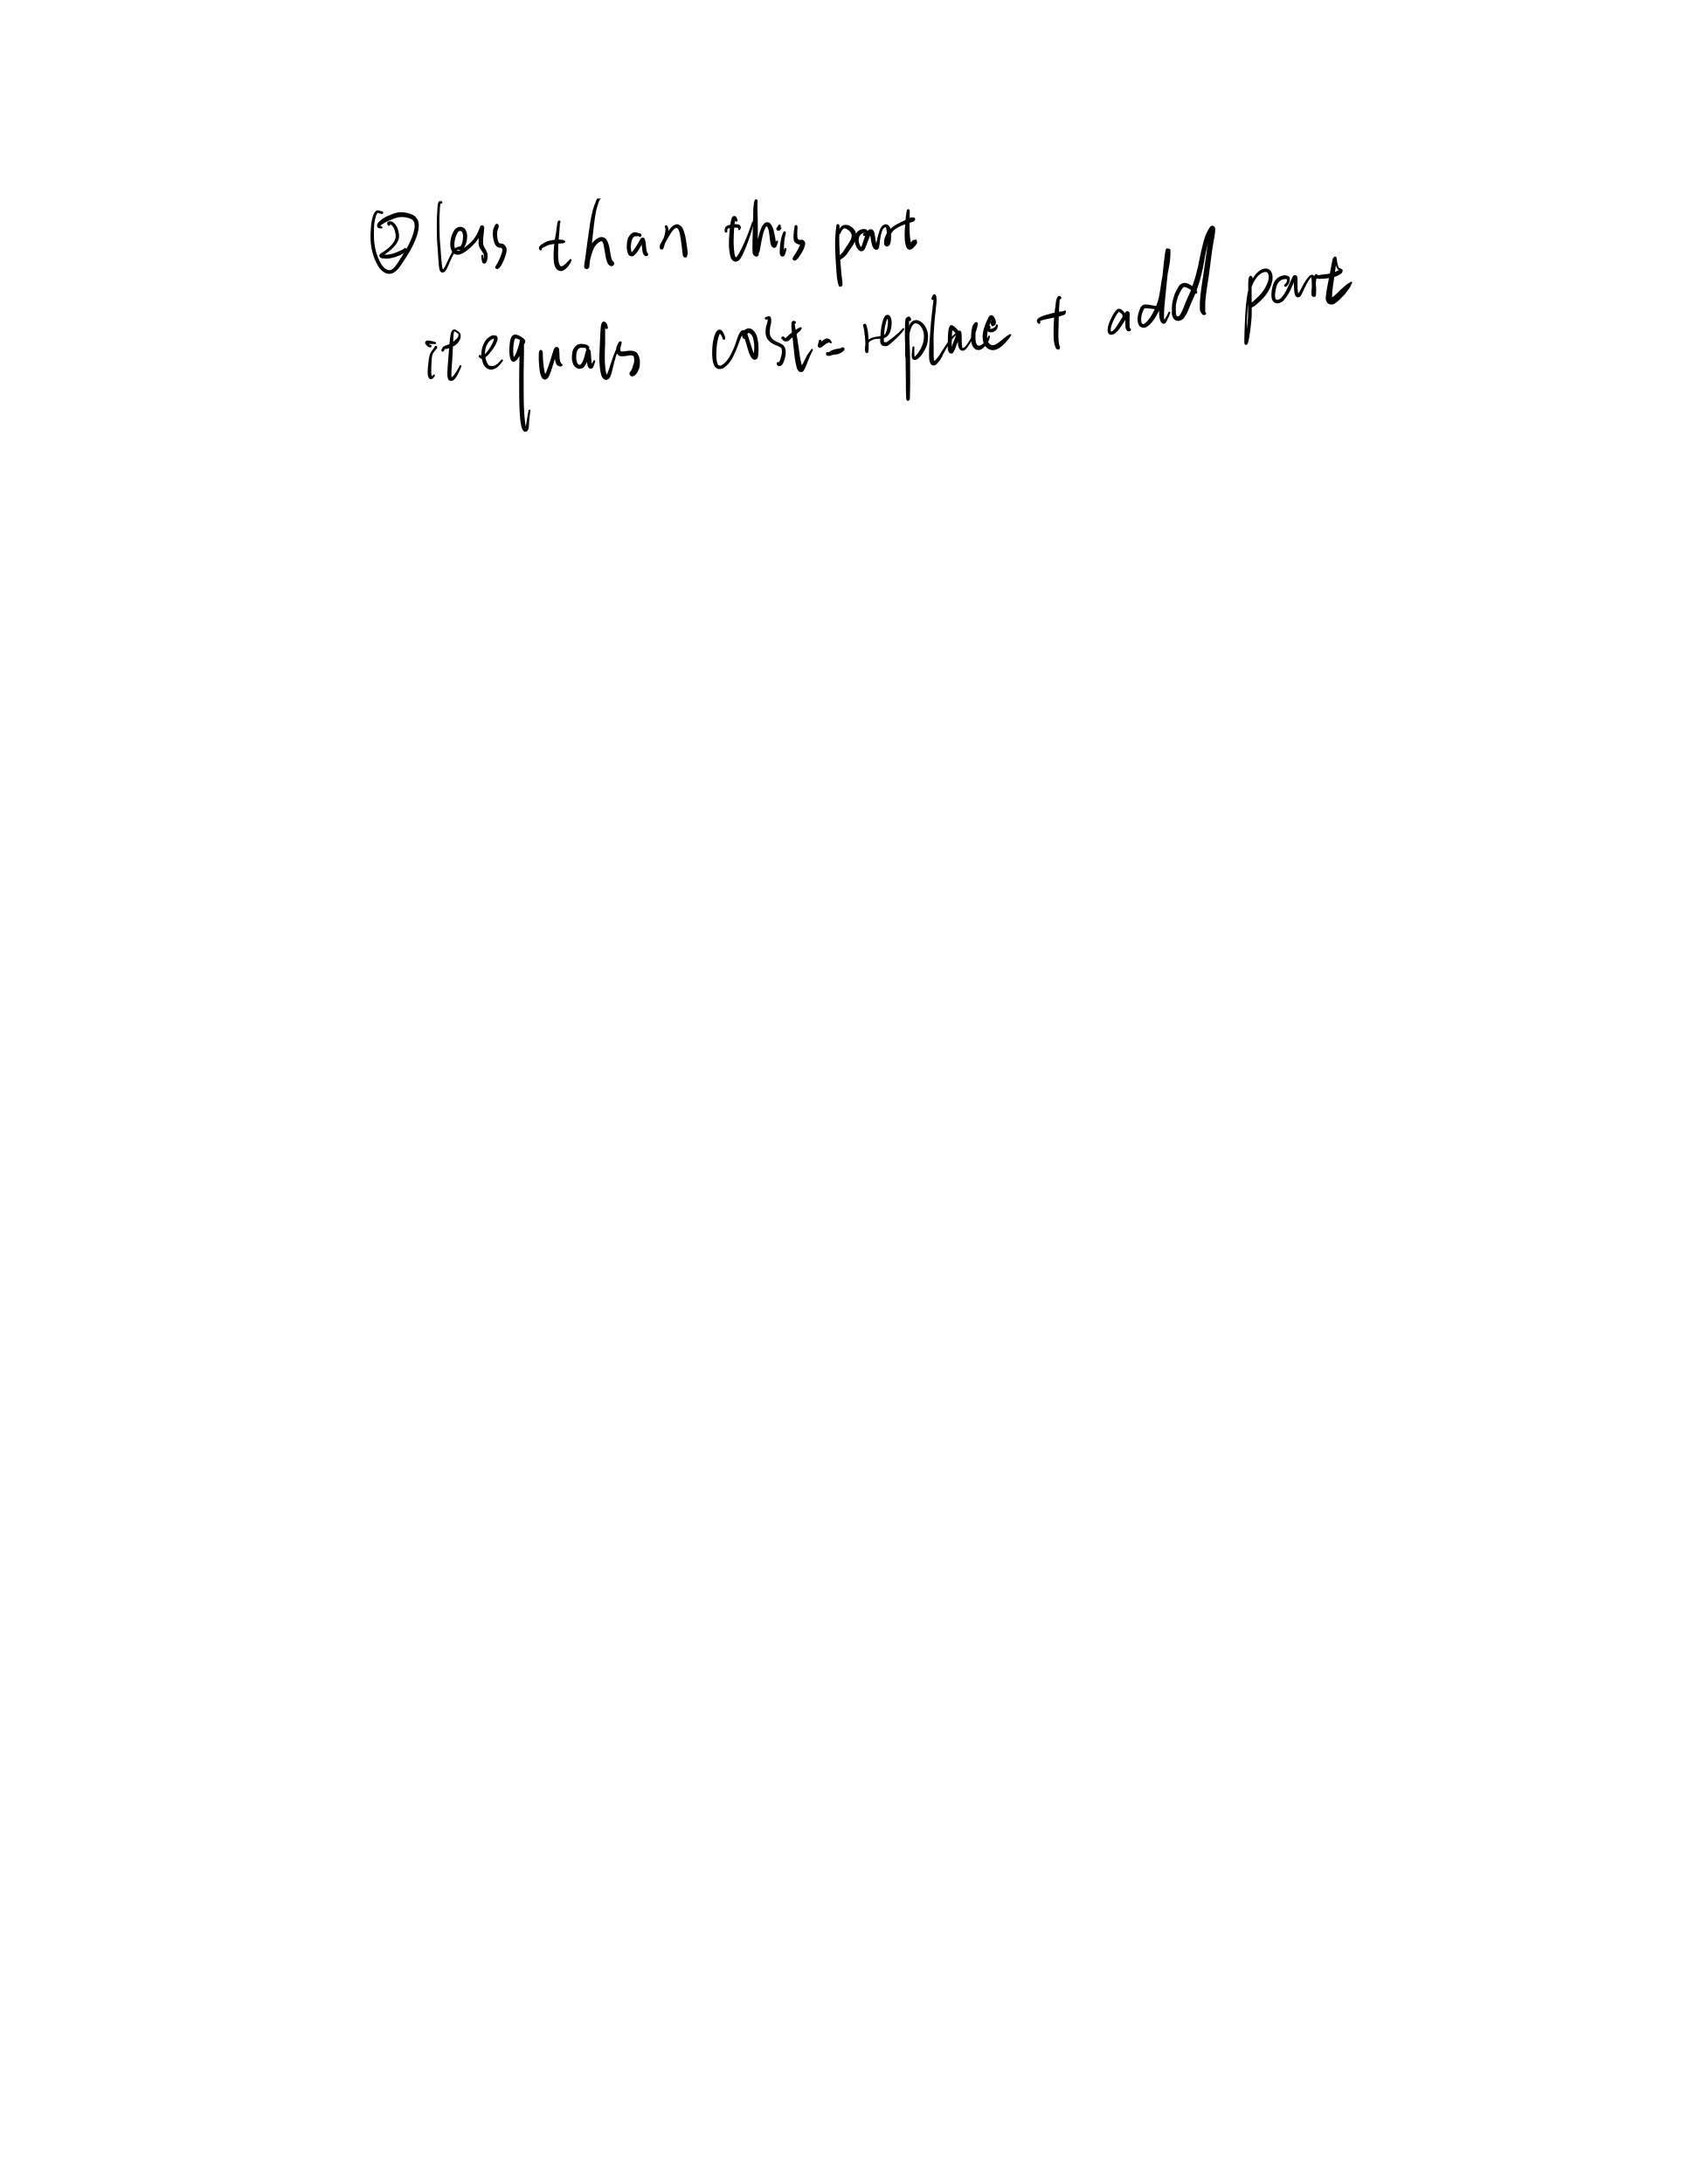 ② less than this part
it equals cost = replace + add part